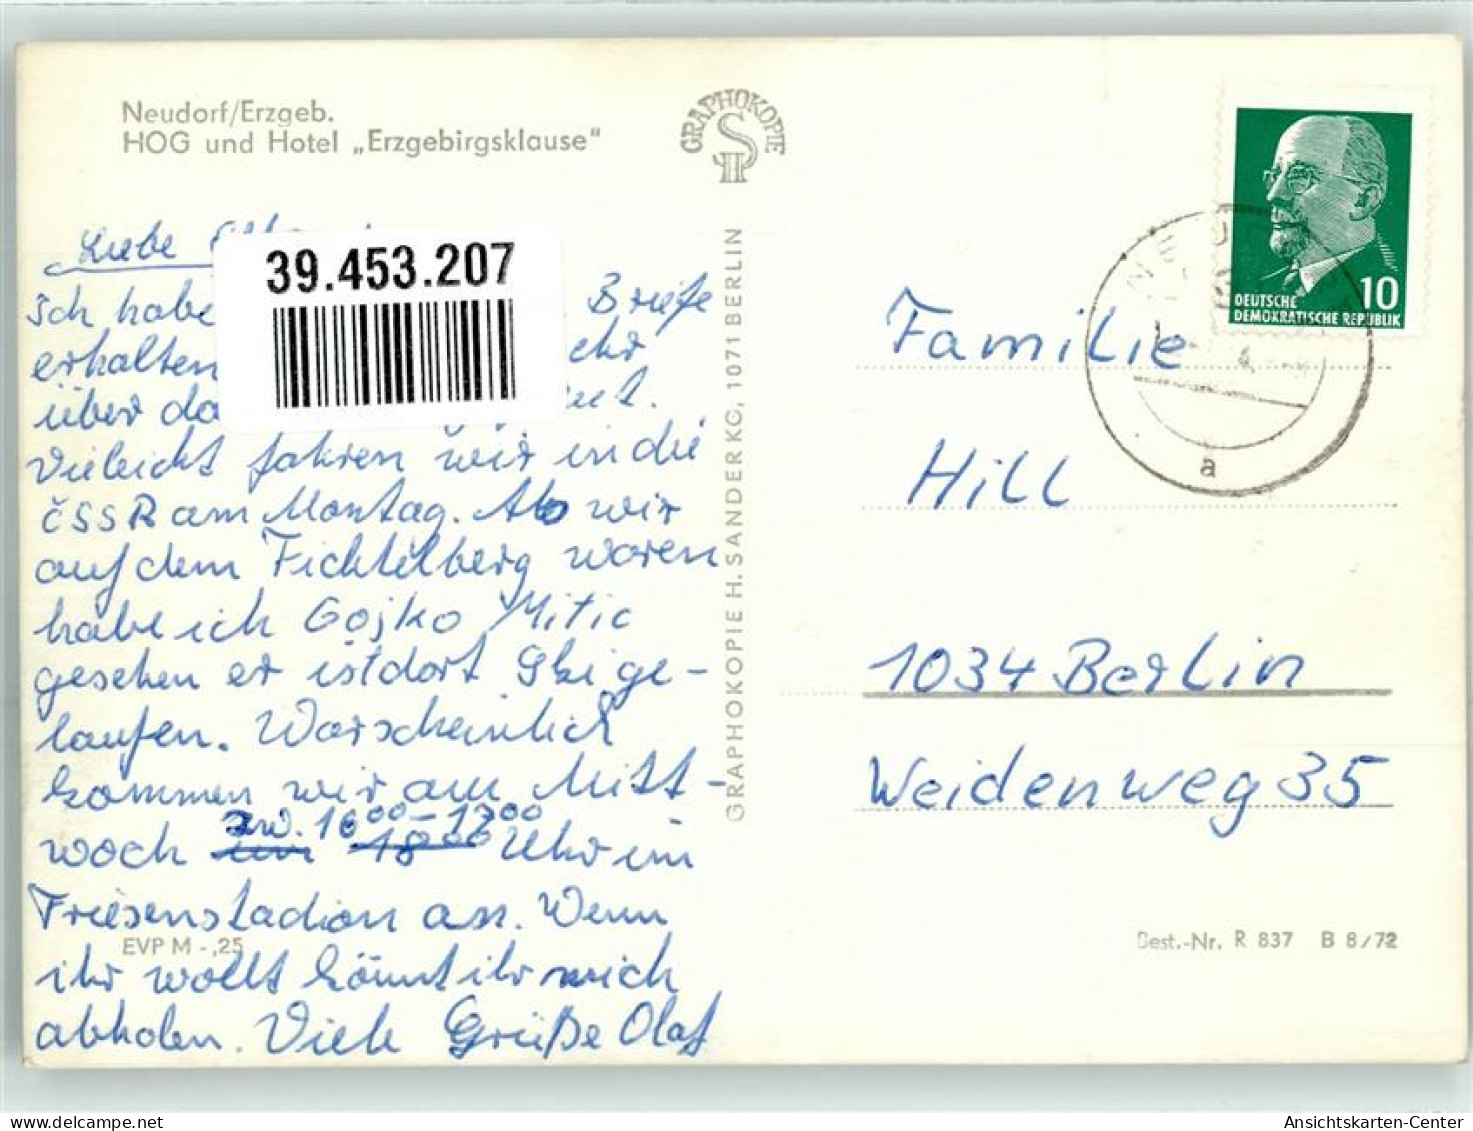 Neudorf/Erzgeb.
HOG und Hotel „Erzgebirgsklause"
GRAPHOKOPIE
H S
Liebe
39.453.207
Ich habe Briefe
erhalten
über
Vieleicht fahren wir in die
ČSSR am Montag. Als wir
auf dem Fichtelberg waren
habe ich Gojko Mitic
gesehen er ist dort Ski ge-
laufen. Warscheinlich
kommen wir am Mitt-
zw. 16⁰⁰-17⁰⁰
woch um 18⁰⁰ Uhr im
Friesenstadion an. Wenn
EVP M -,25
ihr wollt könnt ihr mich
abholen. Viele Grüße Olaf
GRAPHOKOPIE H. SANDER KG, 1071 BERLIN
10
DEUTSCHE
DEMOKRATISCHE REPUBLIK
a
Familie
Hill
1034 Berlin
Weidenweg 35
Best.-Nr. R 837 B 8/72
Ansichtskarten-Center